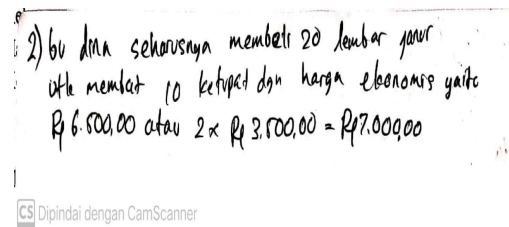 2) bu dina seharusnya membeli 20 lembar janur
utk membuat 10 ketupat dgn harga ekonomis yaitu
Rp 6.500,00 atau 2 x Rp 3.500,00 = Rp7.000,00
CS Dipindai dengan CamScanner